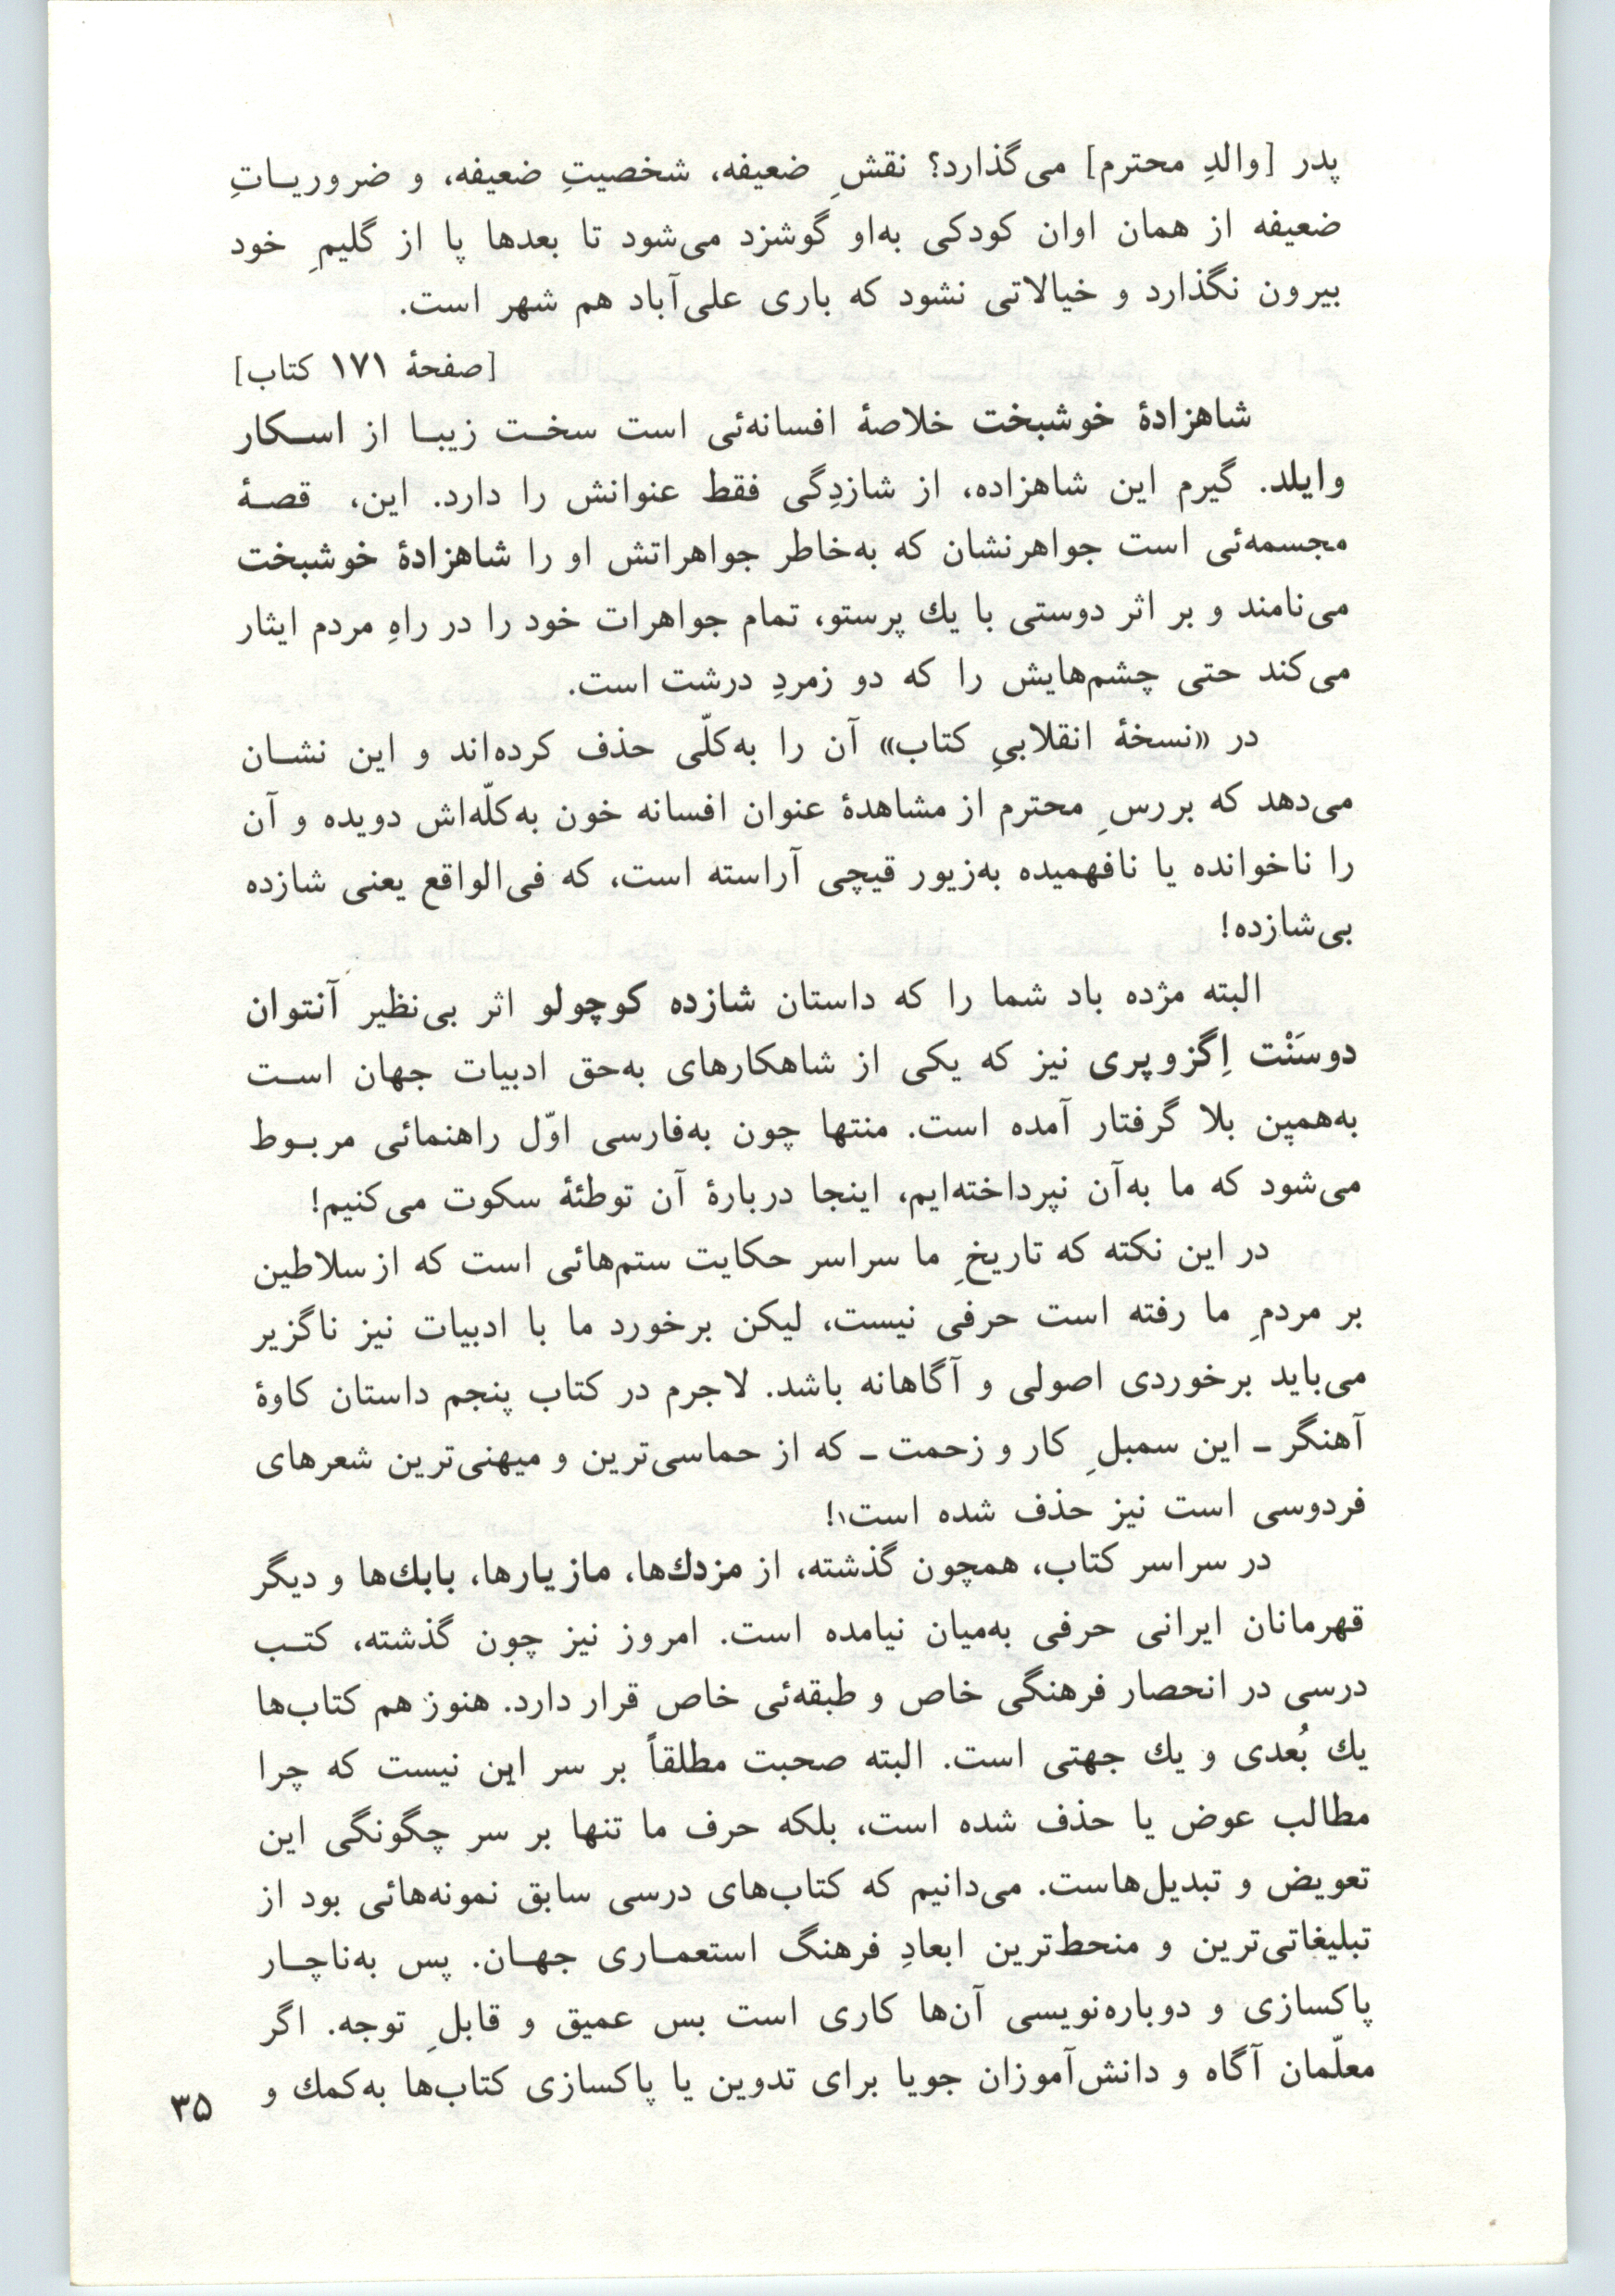 پدر [والدِ محترم] می‌گذارد؟ نقشِ ضعیفه، شخصیتِ ضعیفه، و ضروریـاتِ
ضعیفه از همان اوان کودکی به‌او گوشزد می‌شود تا بعدها پا از گلیمِ خود
بیرون نگذارد و خیالاتی نشود که باری علی‌آباد هم شهر است.
[صفحهٔ ۱۷۱ کتاب]
شاهزادهٔ خوشبخت خلاصهٔ افسانه‌ئی است سخـت زیبـا از اسـکار
وایلد. گیرم این شاهزاده، از شازدِگی فقط عنوانش را دارد. این، قصـهٔ
مجسمه‌ئی است جواهرنشان که به‌خاطر جواهراتش او را شاهزادهٔ خوشبخت
می‌نامند و بر اثر دوستی با یك پرستو، تمام جواهرات خود را در راهِ مردم ایثار
می‌کند حتی چشم‌هایش را که دو زمردِ درشت است.
در «نسخهٔ انقلابیِ کتاب» آن را به‌کلّی حذف کرده‌اند و این نشـان
می‌دهد که بررسِ محترم از مشاهدهٔ عنوان افسانه خون به‌کلّه‌اش دویده و آن
را ناخوانده یا نافهمیده به‌زیور قیچی آراسته است، که فی‌الواقع یعنی شازده
بی‌شازده!
البته مژده باد شما را که داستان شازده کوچولو اثر بی‌نظیر آنتوان
دوسَنْت اِگزوپری نیز که یکی از شاهکارهای به‌حق ادبیات جهان اسـت
به‌همین بلا گرفتار آمده است. منتها چون به‌فارسی اوّل راهنمائی مربـوط
می‌شود که ما به‌آن نپرداخته‌ایم، اینجا دربارهٔ آن توطئهٔ سکوت می‌کنیم!
در این نکته که تاریخِ ما سراسر حکایت ستم‌هائی است که از سلاطین
بر مردمِ ما رفته است حرفی نیست، لیکن برخورد ما با ادبیات نیز ناگزیر
می‌باید برخوردی اصولی و آگاهانه باشد. لاجرم در کتاب پنجم داستان کاوهٔ
آهنگر ـ این سمبلِ کار و زحمت ـ که از حماسی‌ترین و میهنی‌ترین شعرهای
فردوسی است نیز حذف شده است۱!
در سراسر کتاب، همچون گذشته، از مزدك‌ها، مازیارها، بابك‌ها و دیگر
قهرمانان ایرانی حرفی به‌میان نیامده است. امروز نیز چون گذشته، کتـب
درسی در انحصار فرهنگی خاص و طبقه‌ئی خاص قرار دارد. هنوز هم کتاب‌ها
یك بُعدی و یك جهتی است. البته صحبت مطلقاً بر سر این نیست که چرا
مطالب عوض یا حذف شده است، بلکه حرف ما تنها بر سر چگونگی این
تعویض و تبدیل‌هاست. می‌دانیم که کتاب‌های درسی سابق نمونه‌هائی بود از
تبلیغاتی‌ترین و منحط‌ترین ابعادِ فرهنگ استعمـاری جهـان. پس به‌ناچـار
پاکسازی و دوباره‌نویسی آن‌ها کاری است بس عمیق و قابلِ توجه. اگر
معلّمان آگاه و دانش‌آموزان جویا برای تدوین یا پاکسازی کتاب‌ها به‌کمك و
۳۵